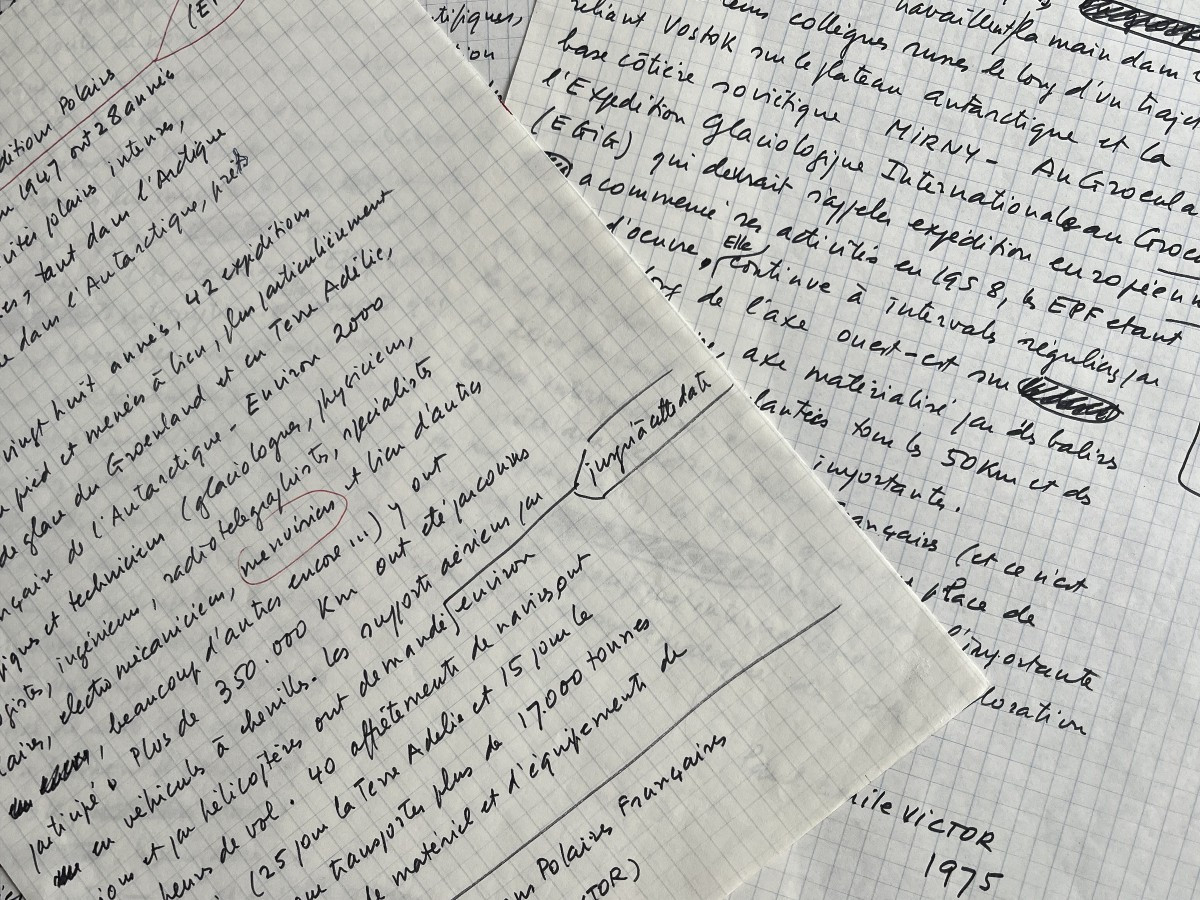 (EP
ditions Polaires
1947 ont 28 années
vités polaires intenses,
tant dans l'Arctique
dans l'Antarctique, près
vingt huit années, 42 expéditions
pied et menées à bien, plus particulièrement
de glace du Groenland et en Terre Adélie,
nçaise de l'Antarctique - Environ 2000
fiques et techniciens (glaciologues, physiciens,
ogistes, ingénieurs, radiotélégraphistes, spécialistes
laires, électromécaniciens, menuisiers et bien d'autres
, beaucoup d'autres encore...) y ont
participé. Plus de 350.000 Km ont été parcourus
en véhicules à chenilles. Les supports aériens par
ions et par hélicoptères ont demandé environ jusqu'à cette date
heures de vol. 40 affrètements de navires ont
(25 pour la Terre Adélie et 15 pour le
transportés plus de 17.000 tonnes
de matériel et d'équipements de
ns Polaires Françaises
CTOR)
tifiques,
tion
travaillent la main dans
leurs collègues russes le long d'un traje
reliant Vostok sur le plateau antarctique et la
base côtière soviétique MIRNY - Au Groenla
l'Expédition Glaciologique Internationale au Groen
(EGIG) qui devrait s'appeler expédition européenn
a commencé ses activités en 1958, les EPF étant
d'oeuvre. Elle continue à intervals réguliers par
de l'axe ouest-est sur
, axe matérialisé par des balises
lantées tous les 50 Km et des
importantes.
ançaises (et ce n'est
place de
l'importante
loration
mile VICTOR
1975